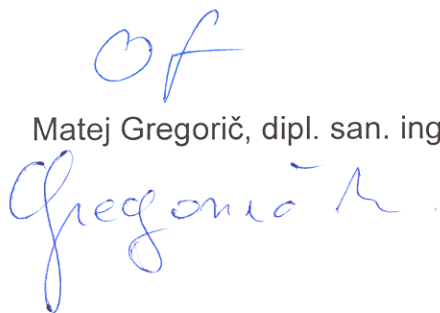 Matej Gregorič, dipl. san. ing
Gregorič M.